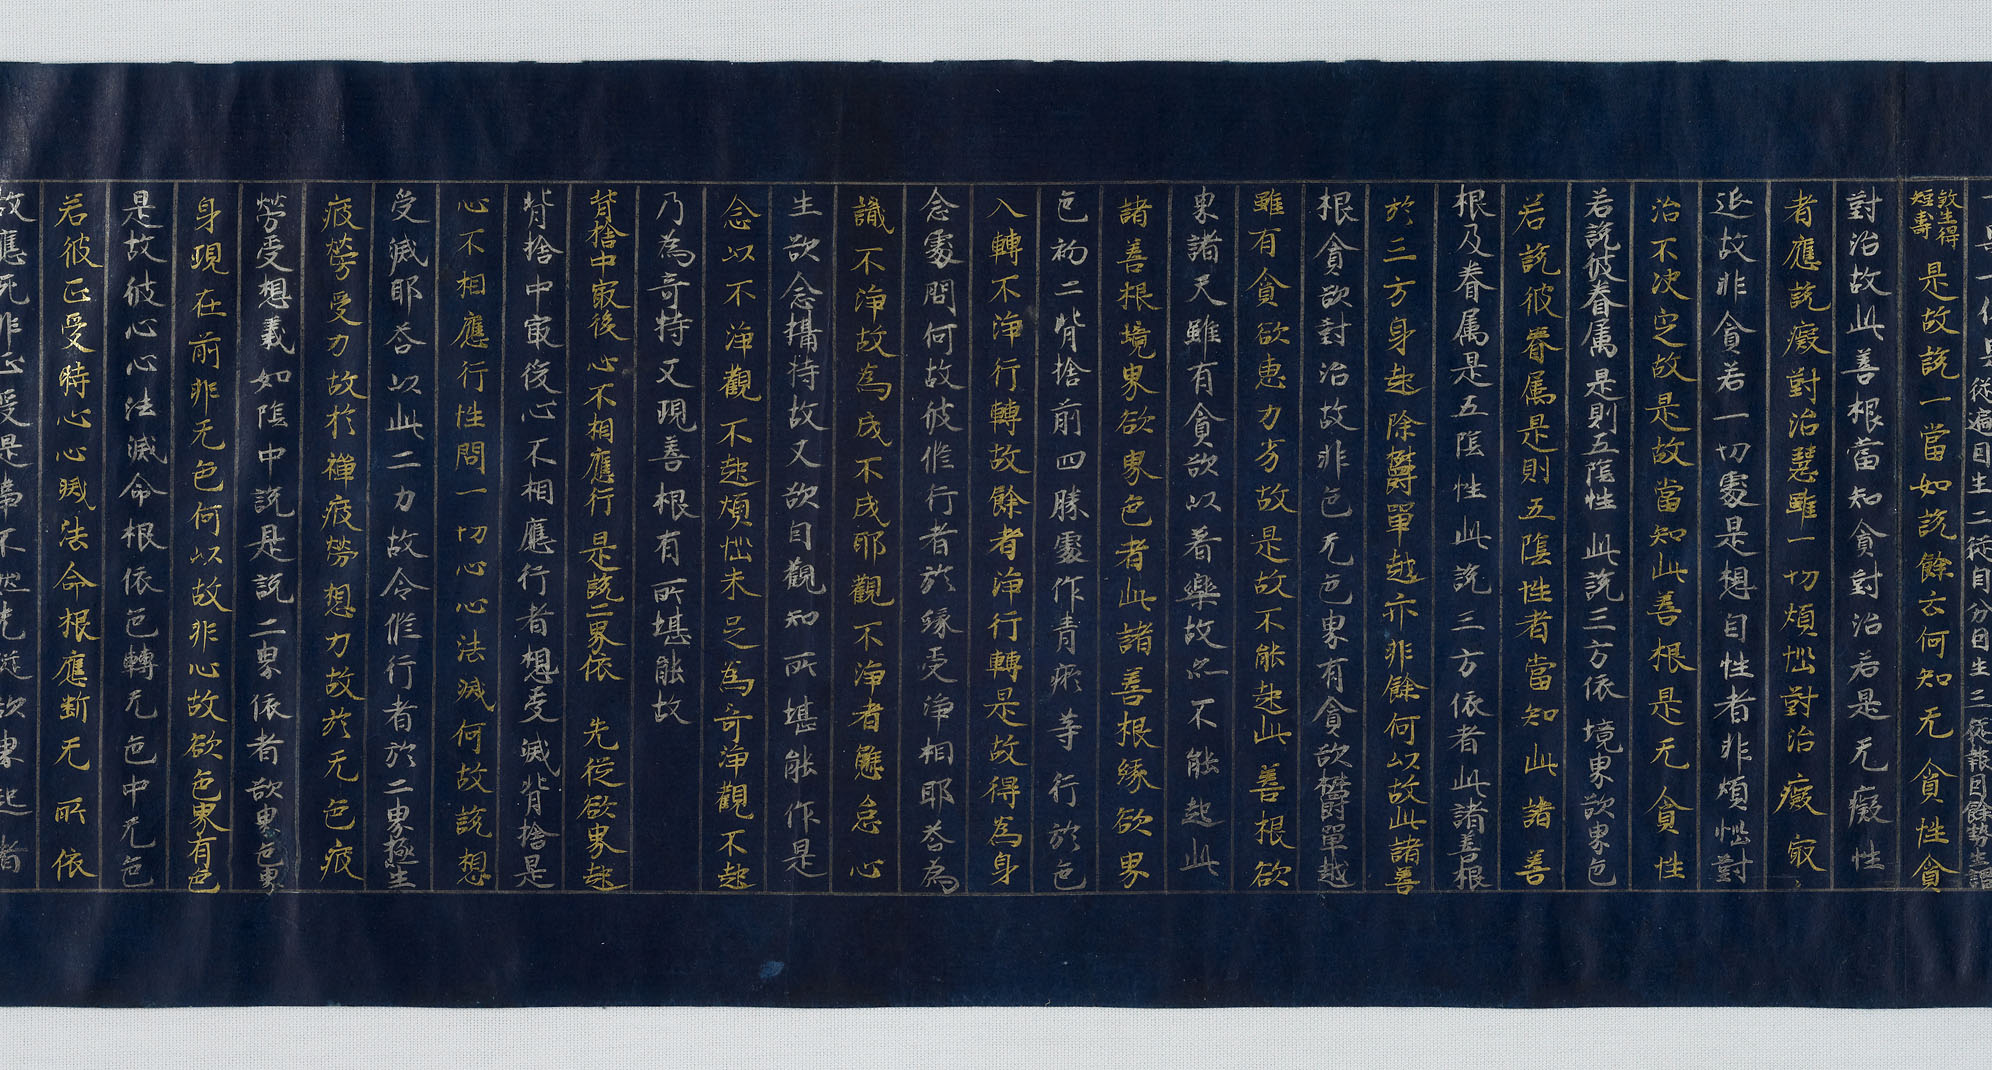 從遍因生二從自分因生三從報因餘勢生謂
敦生得短壽是故説一當如説餘云何知无貪性貪
對治故此善根當知貪對治若是无癡性
者應説癡對治慧雖一切煩惱對治癡㝡
近故非貪若一切處是想自性者非煩惱對
治不决定故是故當知此善根是无貪性
若説彼眷属是則五陰性此説三方依境界欲界色
若説彼眷属是則五陰性者當知此諸善
根及眷属是五陰性此説三方依者此諸善根
於三方身起除欝單越亦非餘何以故此諸善
根貪欲對治故非色无色界有貪欲欝單越
雖有貪欲惠力劣故是故不能起此善根欲
界諸天雖有貪欲以着樂故亦不能起此
諸善根境界欲界色者此諸善根緣欲界
色初二背捨前四勝處作青瘀等行於色
入轉不淨行轉故餘者淨行轉是故得為身
念處問何故彼脩行者於緣受淨相耶荅為
識不淨故為成不成耶觀不淨者懈怠心
生欲念攝持故又欲自觀知所堪能作是
念以不淨觀不起煩惱未足為奇淨觀不起
乃為奇特又現善根有所堪能故
背捨中㝡後心不相應行是説二界依 先從欲界起
背捨中㝡後心不相應行者想受滅背捨是
心不相應行性問一切心心法滅何故説想
受滅耶荅以此二力故令脩行者於二界極生
疲勞受力故於禪疲勞想力故於无色疲
勞受想義如陰中説是説二界依者欲界色界
身現在前非无色何以故非心故欲色界有色
是故彼心心法滅命根依色轉无色中无色
若彼正受時心心滅法命根應斷无所依
故應死非正受是事不然先從欲界起者